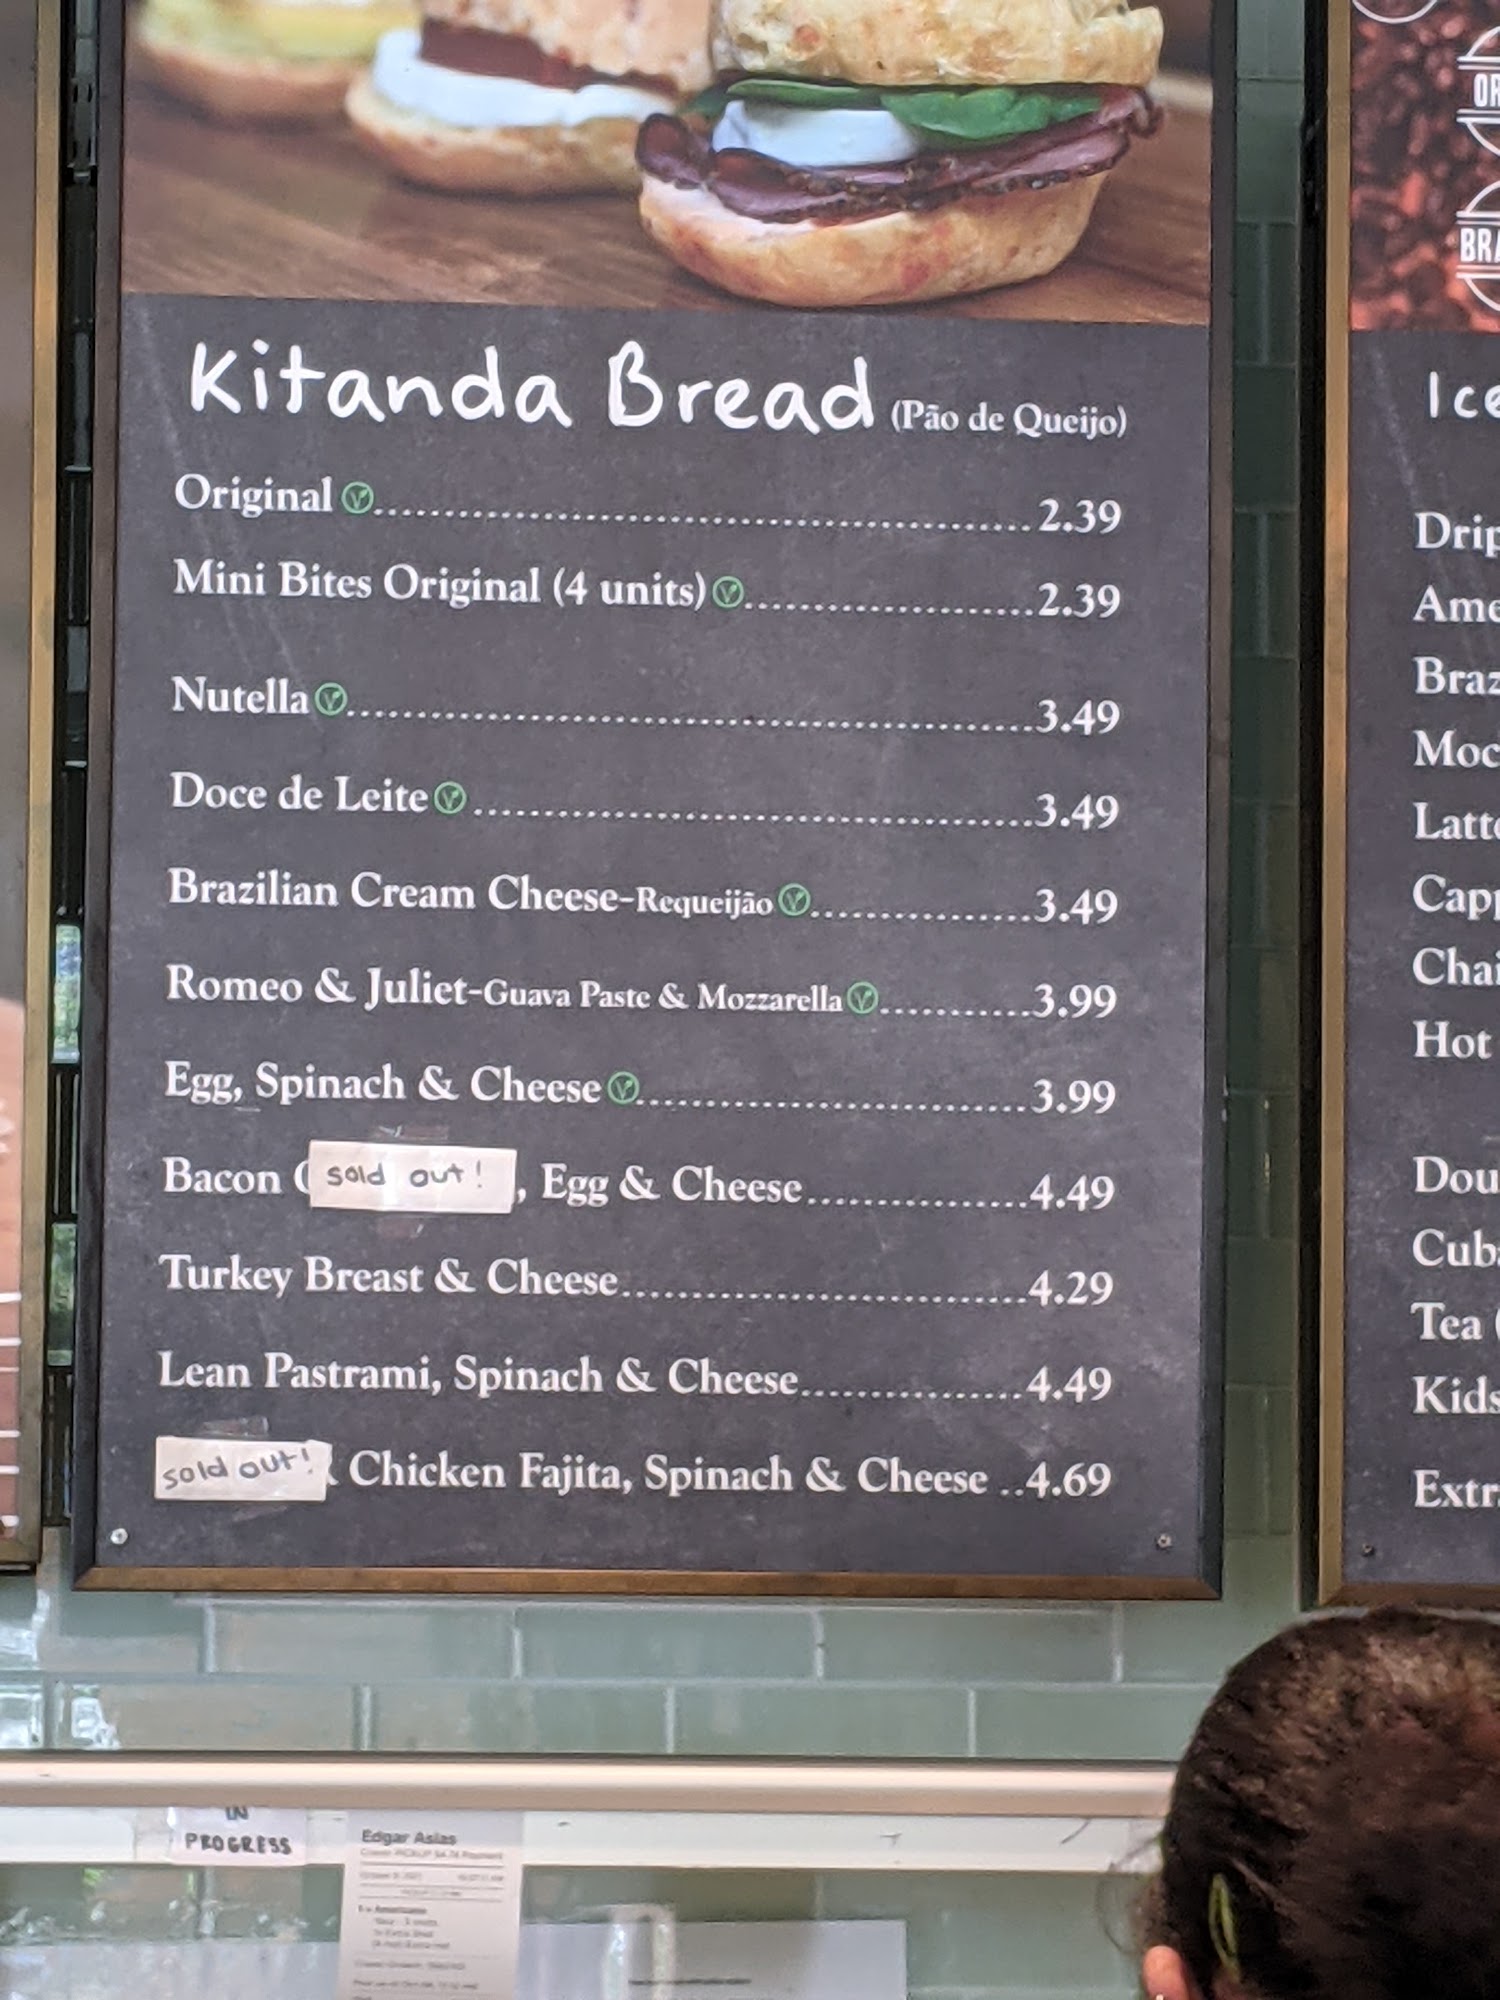 Kitanda Bread (Pão de Queijo)
Original V 2.39
Mini Bites Original (4 units) V 2.39
Nutella V 3.49
Doce de Leite V 3.49
Brazilian Cream Cheese-Requeijão V 3.49
Romeo & Juliet-Guava Paste & Mozzarella V 3.99
Egg, Spinach & Cheese V 3.99
Bacon sold out! , Egg & Cheese 4.49
Turkey Breast & Cheese 4.29
Lean Pastrami, Spinach & Cheese 4.49
sold out! Chicken Fajita, Spinach & Cheese 4.69
OR
BRA
Ice
Drip
Ame
Braz
Moc
Latte
Capp
Chai
Hot
Dou
Cuba
Tea (
Kids
Extr
IN
PROGRESS
Edgar Asias